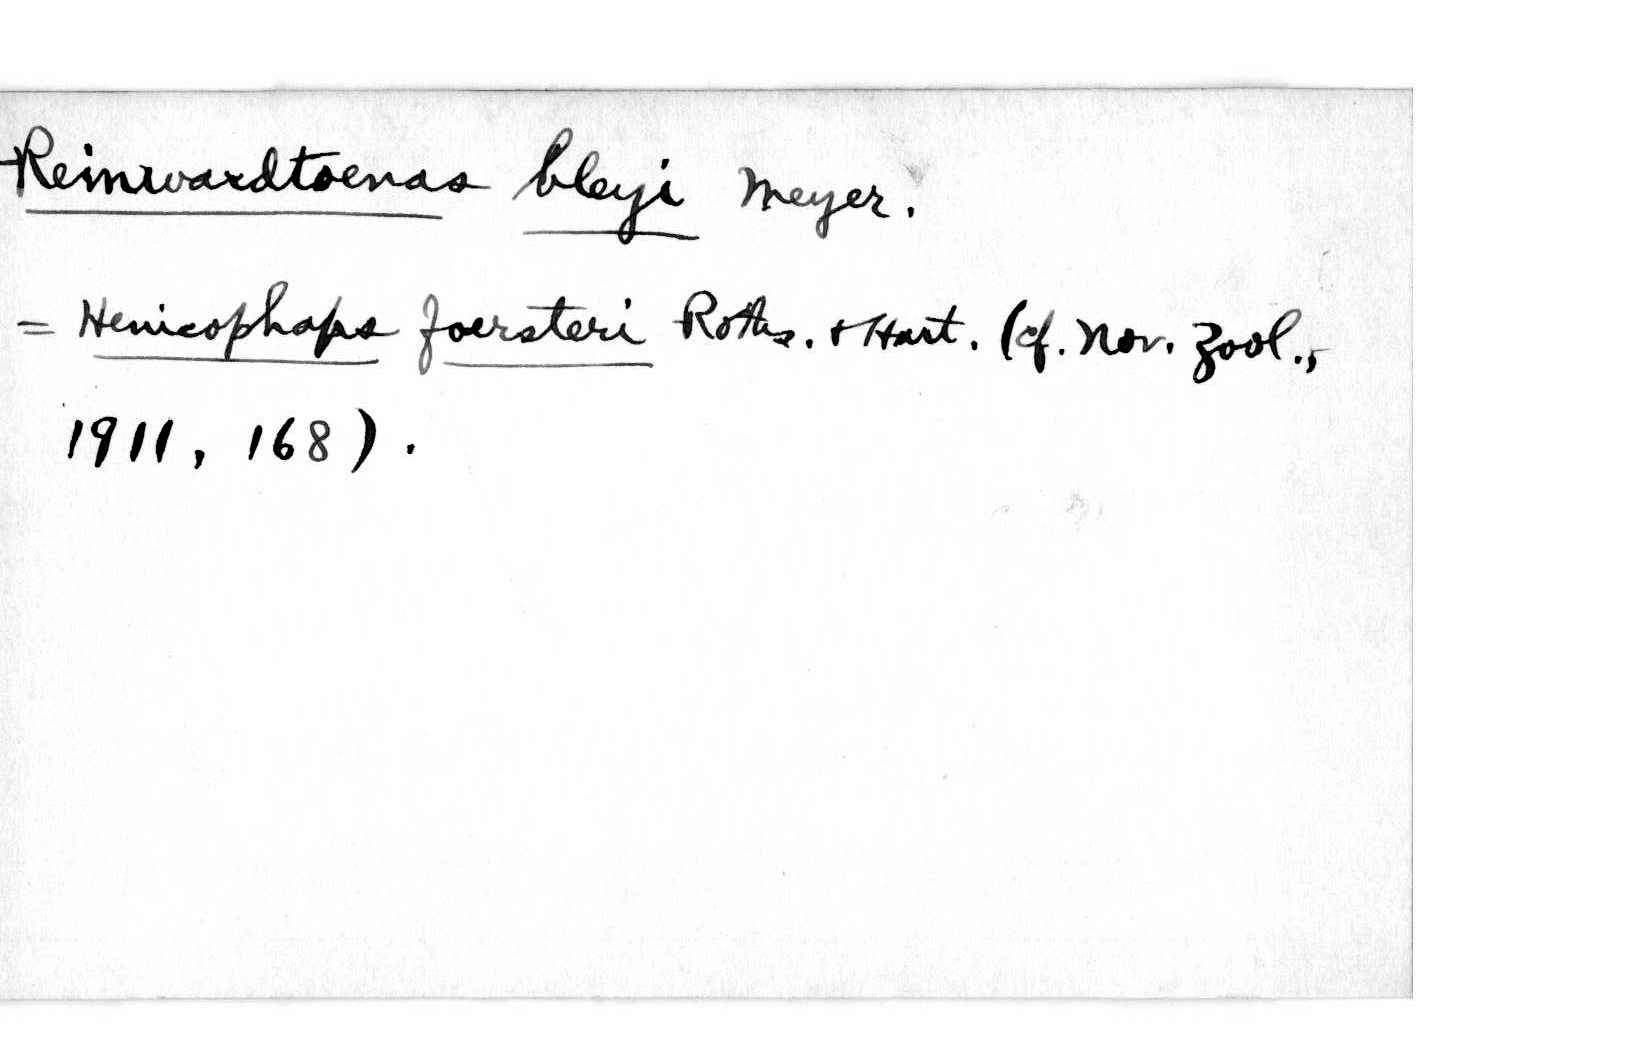 Reinwardtoenas bleyi Meyer.
= Henicophaps foersteri Roths. & Hart. (cf. Nov. Zool.,
1911, 168).